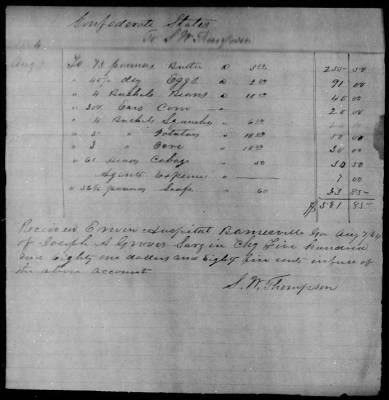 Confederate States
To S. W. Thompson
Aug
To 78 pounds Butter @
" doz Eggs @
" 4 Bushels Beans @ 10.00 40 00
" 300 Ears Corn — 20 00
" 4 Bushels Squashes
" 5 " Potatoes " 10.00 50 00
" 3 " Corn " 10.00 30 00
" 61 Cabag " 50 30 50
Agents Expense — 7 00
" pounds Soap " 60 33 85
$ 581 85
Received Erwin Hospital Barnesville Ga Aug
of Joseph A Groves Surg in Chg Five hundred
and Eighty one dollars and Eighty five cents in full of
the above account
S. W. Thompson